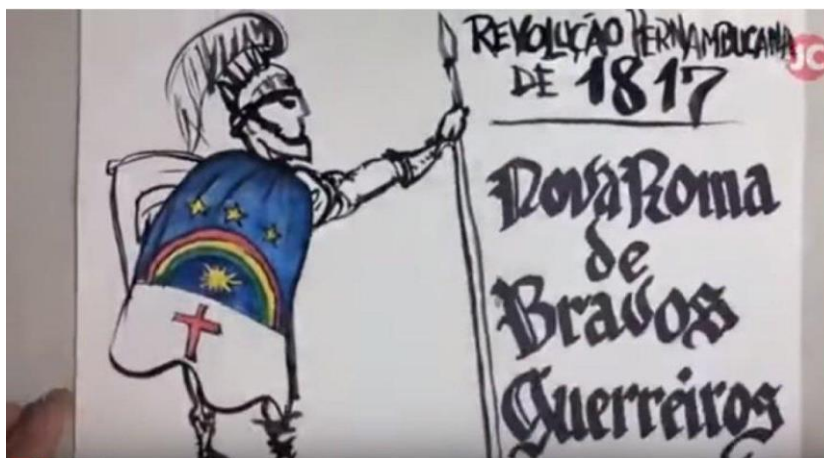 REVOLUÇÃO PERNAMBUCANA
JC
DE 1817
Nova Roma
de
Bravos
Guerreiros